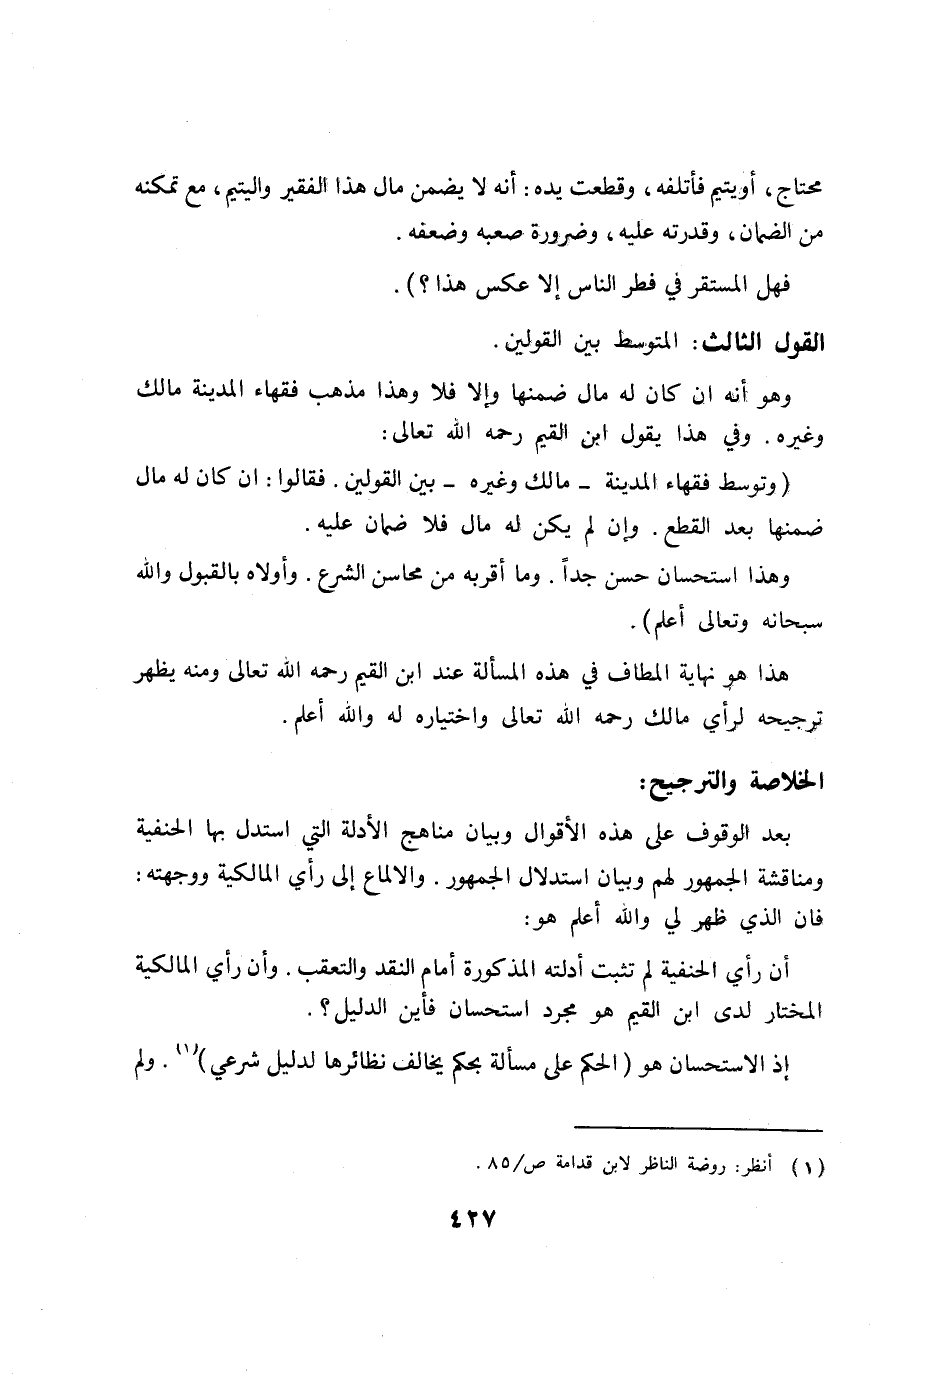 محتاج، أو يتيم فأتلفه، وقطعت يده: أنه لا يضمن مال هذا الفقير واليتيم، مع تمكنه
من الضمان، وقدرته عليه، وضرورة صعبه وضعفه.
فهل المستقر في فطر الناس إلا عكس هذا؟).
القول الثالث: المتوسط بين القولين.
وهو أنه ان كان له مال ضمنها وإلا فلا وهذا مذهب فقهاء المدينة مالك
وغيره. وفي هذا يقول ابن القيم رحمه الله تعالى:
(وتوسط فقهاء المدينة - مالك وغيره - بين القولين. فقالوا: ان كان له مال
ضمنها بعد القطع. وإن لم يكن له مال فلا ضمان عليه.
وهذا استحسان حسن جداً. وما أقربه من محاسن الشرع. وأولاه بالقبول والله
سبحانه وتعالى أعلم).
هذا هو نهاية المطاف في هذه المسألة عند ابن القيم رحمه الله تعالى ومنه يظهر
ترجيحه لرأي مالك رحمه الله تعالى واختياره له والله أعلم.
الخلاصة والترجيح:
بعد الوقوف على هذه الأقوال وبيان مناهج الأدلة التي استدل بها الحنفية
ومناقشة الجمهور لهم وبيان استدلال الجمهور. والالماع إلى رأي المالكية ووجهته:
فان الذي ظهر لي والله أعلم هو:
أن رأي الحنفية لم تثبت أدلته المذكورة أمام النقد والتعقب. وأن رأي المالكية
المختار لدى ابن القيم هو مجرد استحسان فأين الدليل؟.
إذ الاستحسان هو (الحكم على مسألة بحكم يخالف نظائرها لدليل شرعي)(١). ولم
(١) أنظر: روضة الناظر لابن قدامة ص/٨٥.
٤٢٧